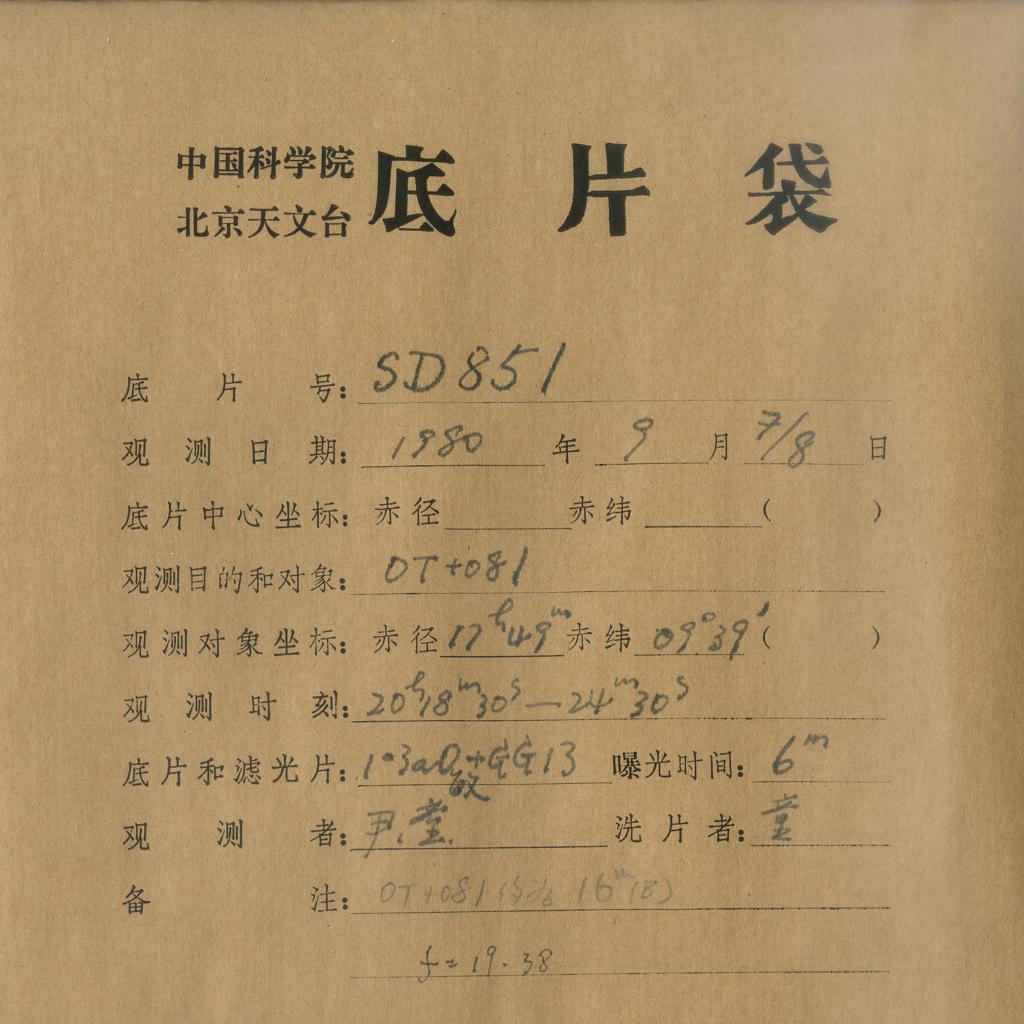 中国科学院
北京天文台
底片袋
底片号: SD851
观测日期: 1980年9月7/8日
底片中心坐标: 赤径 赤纬 ( )
观测目的和对象: OT+081
观测对象坐标: 赤径 17h49m 赤纬 09°39′ ( )
观测时刻: 20h18m30s—24m30s
底片和滤光片: 103aO+GG13 曝光时间: 6m
敏
观测者: 尹. 洗片者: 童
备注: OT+081 16m(B)
f=19.38